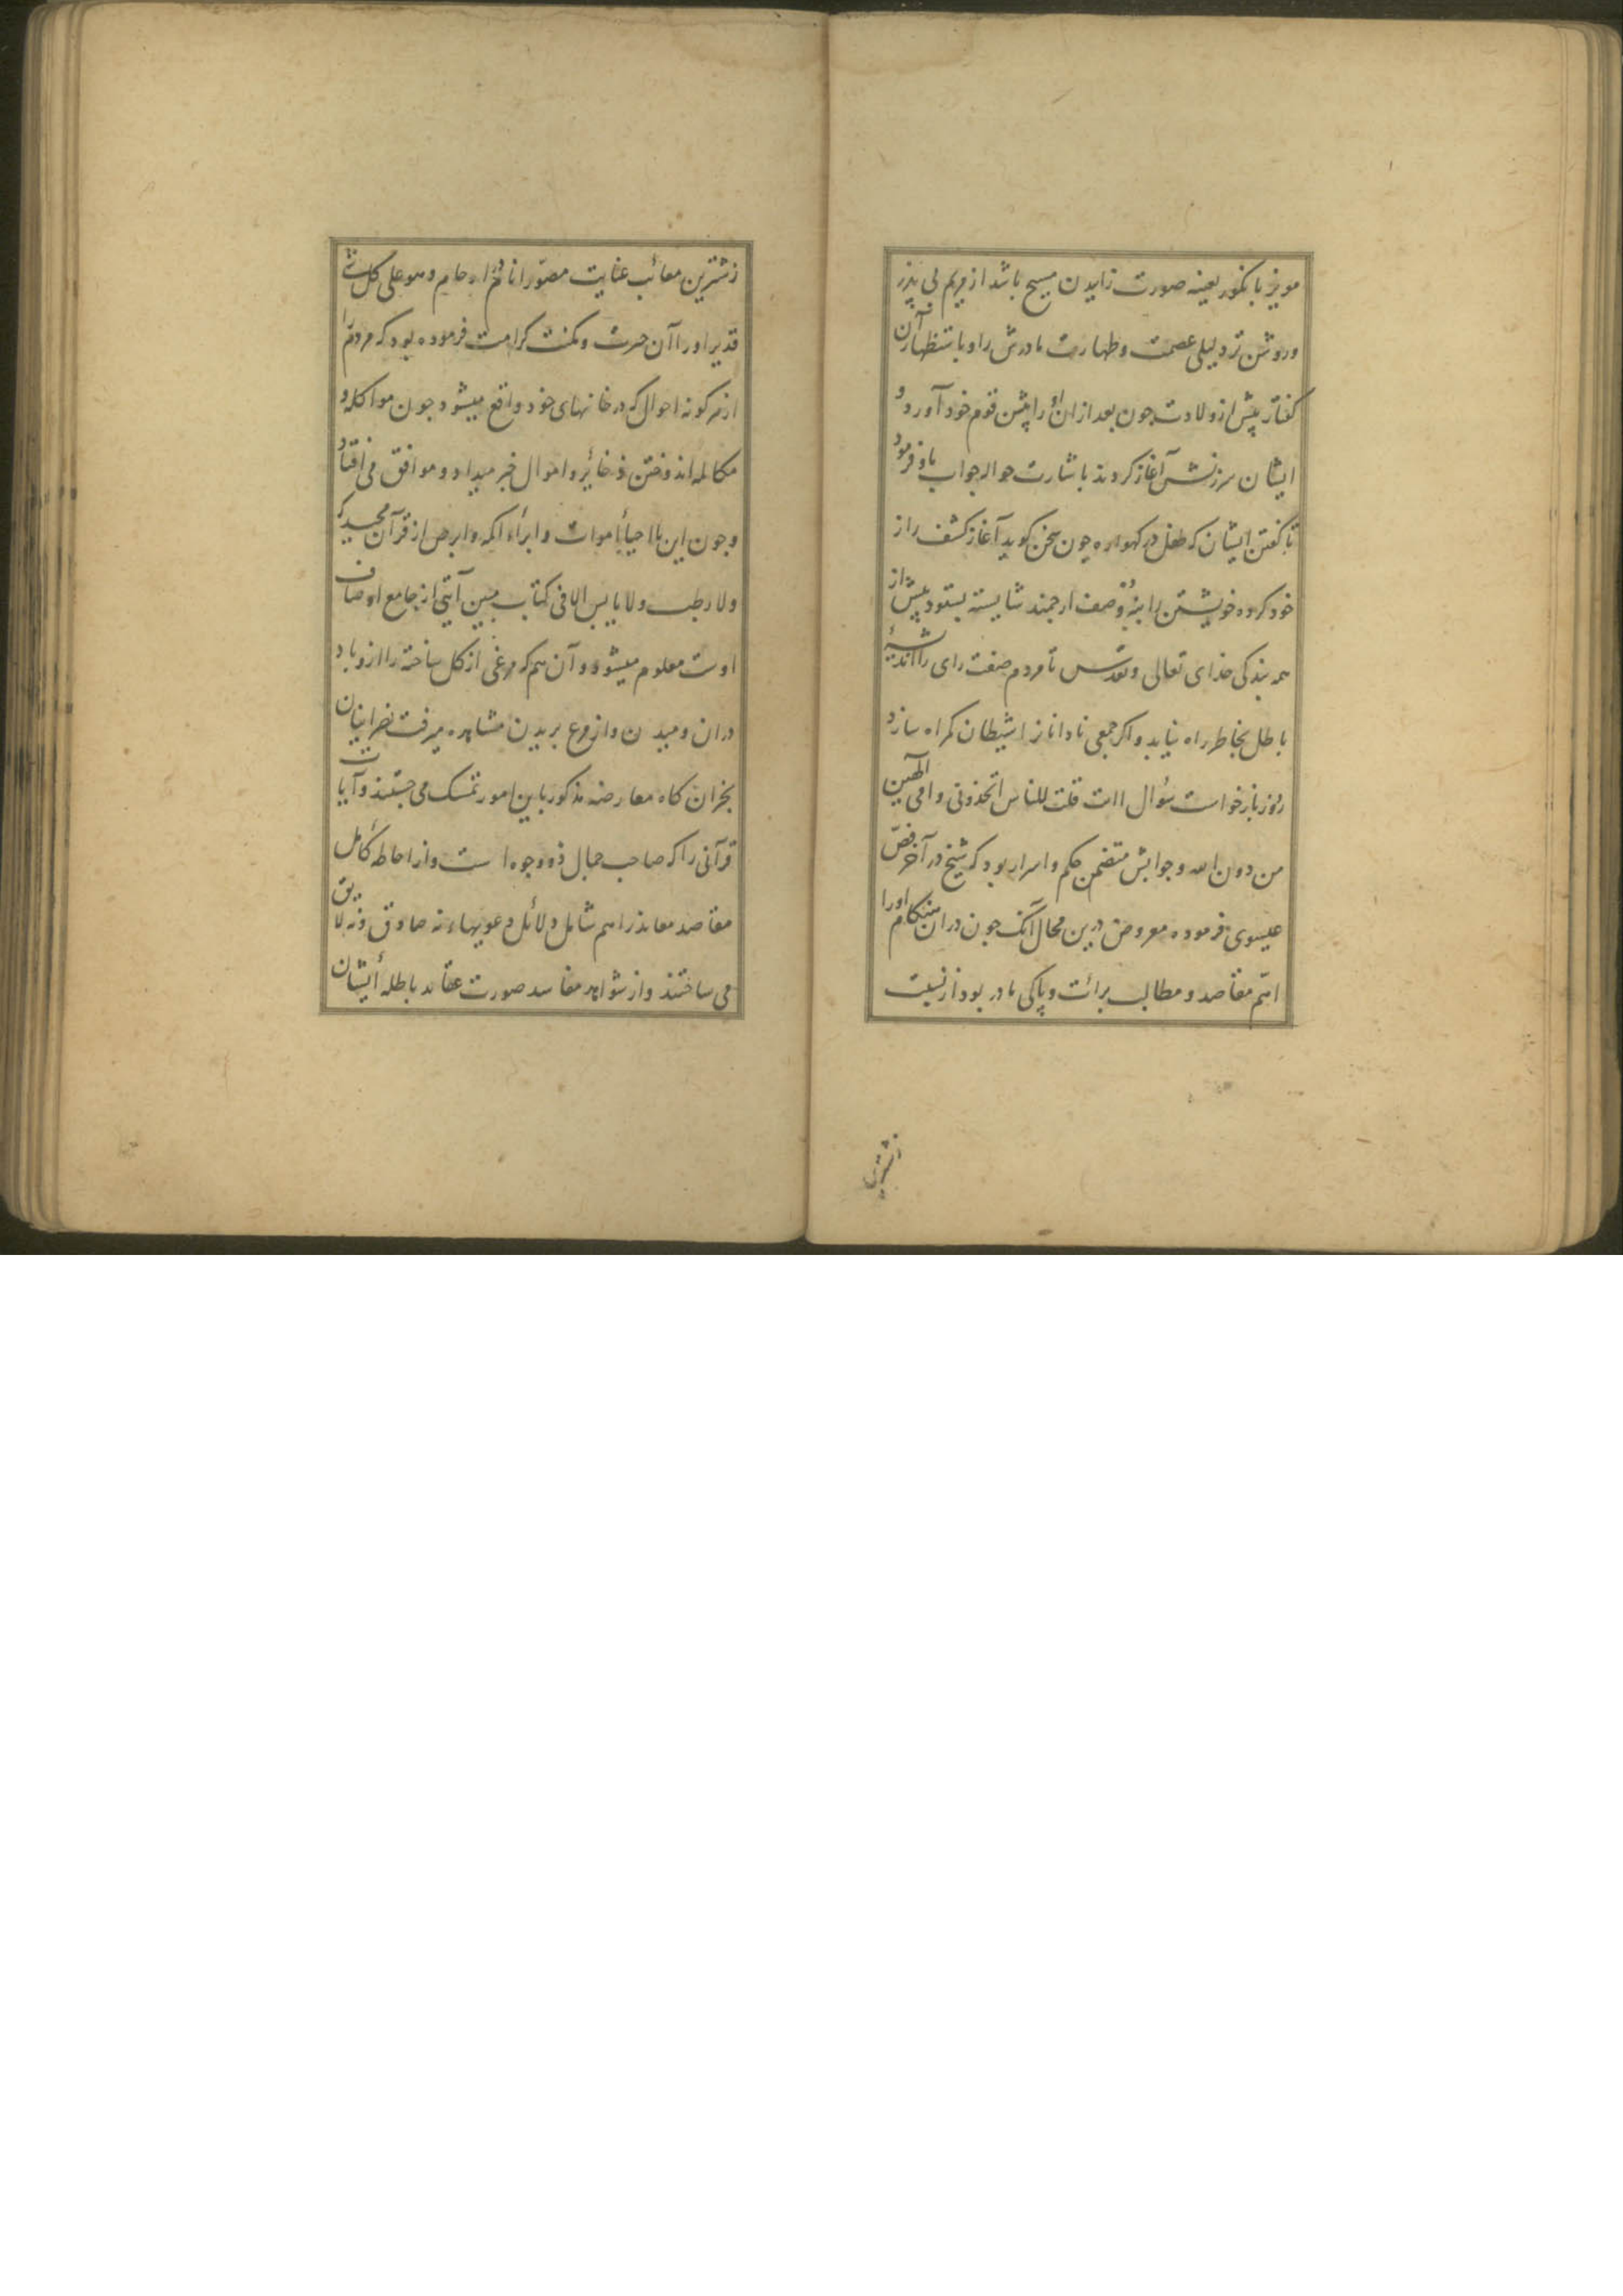 مویز با نکور بعینه صورت زاییدن مسیح باشد از مریم بی پدر
و روشن تر دلیلی عصمت و طهارت مادرش را و باستظهار آن
کفتار پیش از ولادت چون بعد از ان او را پیش قوم خود آورد و
ایشان سرزنش آغاز کردند باشارت حواله جواب باو فرمود
تا کفتن ایشان که طفل در کهواره چون سخن کوید آغاز کشف راز
خود کرده خویشتن را وصف ارجمند شایسته بستود پیش از
همه بندکی خدای تعالی و تقدس تا مردم صفت رای را اندیشهٔ
باطل بخاطر راه نیابد و اکر جمعی نادانان را شیطان کمراه سازد
روز بازخواست سؤال اانت قلت للناس اتخذونی و امی الهین
من دون الله و جوابش متضمن حکم و اسرار بود که شیخ در آخر فص
عیسوی فرموده معروض درین محال آنک چون در ان هنکام او را
اهمّ مقاصد و مطالب برائت و پاکی مادر بود از نسبت
زشترین
زشترین معائب عنایت مصوّر انا فی ارحام و هو علی کل شئ
قدیر او را آن حرت و مکنت کرامت فرموده بود که مردم را
از هر کونه احوال که در خانهای خود واقع میشود چون مواکله و
مکالمه اندوختن ذخائر و اموال خبر میداد و موافق می افتاد
و چون این با احیاٗ اموات و ابراٗء اکمه و ابرص از قرآن مجید که
ولا رطب ولا یابس الا فی کتاب مبین آیتی از جامع اوصاف
اوست معلوم میشود و آن هم که مرغی از کل ساخته را از و باد
در ان و میدن و از وع بریدن مشاهره میرفت نصرانیان
نجران کاه معارضه مذکور باین امور تمسک می جستند و آیات
قرآنی را که صاحب جمال ذو وجوه است و از احاطه کامل
مقاصد معاندرا هم شامل دلائل دعویهاء نه صادق و نه لایق
می ساختند و از شواهد مفاسد صورت عقاید باطلهٔ ایشان